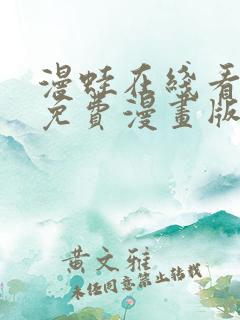 漫蛙在綫看
免費漫畫版
黄文雅
未经同意禁止转载